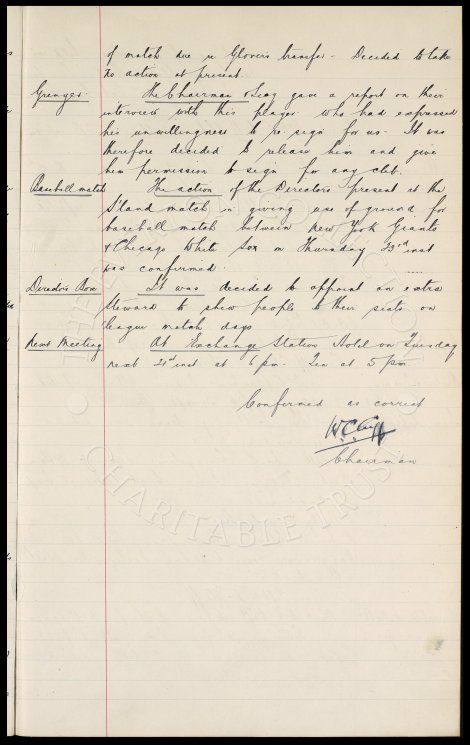 of match due re Glover's transfer - Decided to take
no action at present.
Granger. The Chairman & Secy gave a report on their
interview with this player who had expressed
his unwillingness to re-sign for us. It was
therefore decided to release him and give
him permission to sign for any club.
Baseball match The action of the Directors present at the
S'land match in giving use of ground for
baseball match between New York Giants
& Chicago White Sox on Thursday 23rd inst
was confirmed.
Director's Box It was decided to appoint an extra
steward to show people to their seats on
league match days
Next Meeting At Exchange Station Hotel on Tuesday
next 21st inst at 6 pm. Tea at 5 pm
Confirmed as correct
W.C. Cuff
Chairman
CHARITABLE TRUST